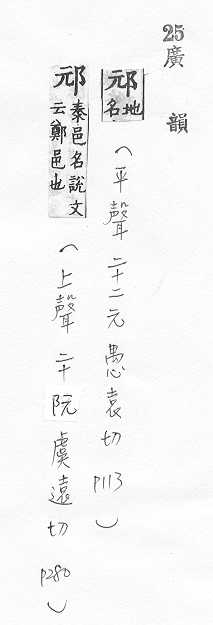 25廣韻
邧地名(平聲二十二元愚袁切P113)
邧秦邑名說文云鄭邑也(上聲二十阮虞遠切P280)